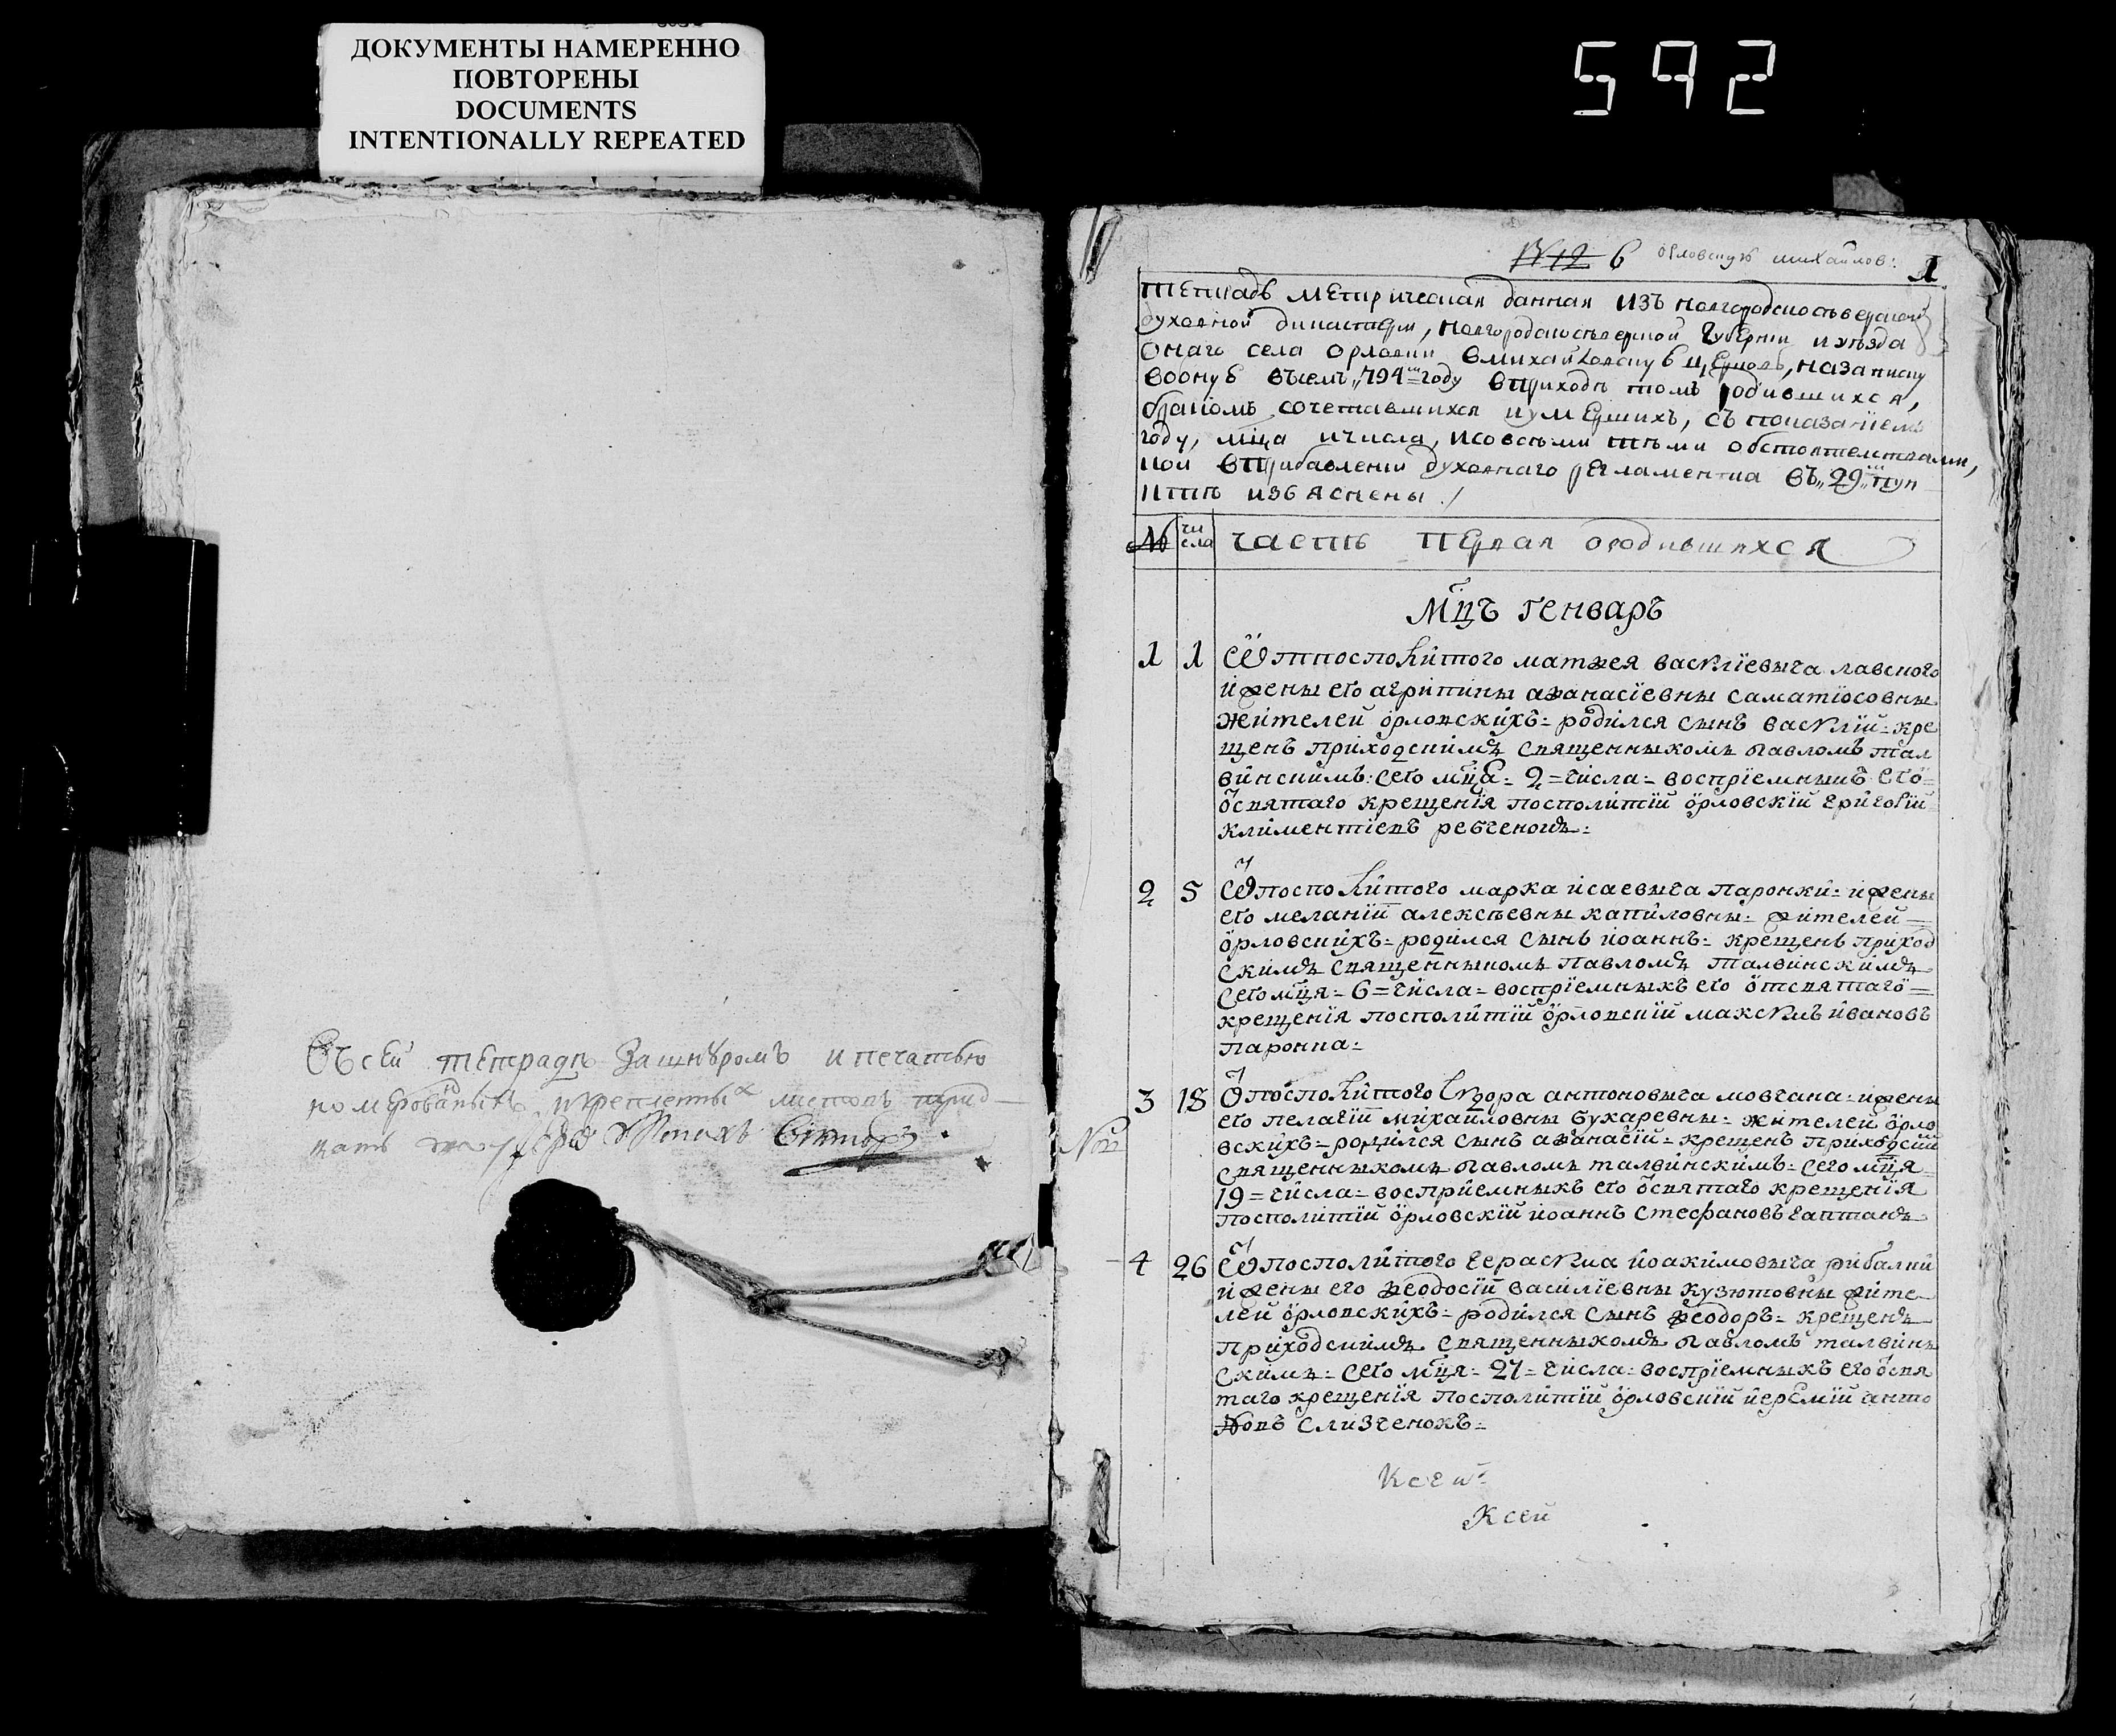 ДОКУМЕНТЫ НАМЕРЕННО
ПОВТОРЕНЫ
DOCUMENTS
INTENTIONALLY REPEATED
592
Въ сей тетради зашнуромъ и печатью
листовъ
№12 6 орловскую михайлов: 1
Тетрадь метрическая данная изъ новгородсѣверской
духовной дикастерїи, новгородсѣверской губернїи и уѣзда
онаго села орловки вмихайловскую церковь, на записку
воную въсемъ 794м году вприходѣ томъ родившихся,
бракомъ сочетавшихся и умершихъ, съ показанїемъ
году, мїца и числа, и совсѣми тѣми обстоятелствами,
кои вприбавленїи духовнаго регламента въ 29м пун
ктѣ изъяснены /
№ чи сла часть первая ородившихся
Мцъ генваръ
1 1 Ѿ посполитого матѳея василїевыча лавского
и жены его агрипины аѳанасїевны саматїосовны
жителей орловскихъ = родился сынъ василїй = кре
щенъ приходскимъ священныкомъ павломъ тал
винскимъ: сего мця = 2 = числа = воспрїемныкъ его
ѿ святаго крещенїя посполитїй орловскїй григорїй
климентїевъ ребченокъ =
2 5 Ѿ посполитого марка исаевыча паронки = и жены
его меланїи алексѣевны капиловны = жителей
орловскихъ = родился сынъ иоаннъ = крещенъ приход
скимъ священныкомъ павломъ талвинскимъ
сего мця = 6 = числа = воспрїемныкъ его отсвятаго
крещенїя посполитїй орловскїй максимъ ивановъ
паронка =
3 18 Ѿ посполитого антоновыча мовчана = и жены
его пелагїи михайловны бухаревны = жителей орло
вскихъ = родился сынъ аѳанасїй = крещенъ приходский
священныкомъ павломъ талвинскимъ = сего мця
19 = числа = воспрїемныкъ его ѿ святаго крещенїя
посполитїй орловскїй иоаннъ стефановъ гаптанъ
4 26 Ѿ посполитого герасима иоакимовыча рибалки
и жены его ѳеодосїи василїевны кузютовны жите
лей орловскихъ = родился сынъ ѳеодоръ = крещенъ
приходскимъ священныкомъ павломъ талвин
скимъ = сего мця = 27 = числа = воспрїемныкъ его ѿ свя
таго крещенїя посполитїй орловскїй иеремїй анто
новъ слизченокъ =
Ксей
Ксей